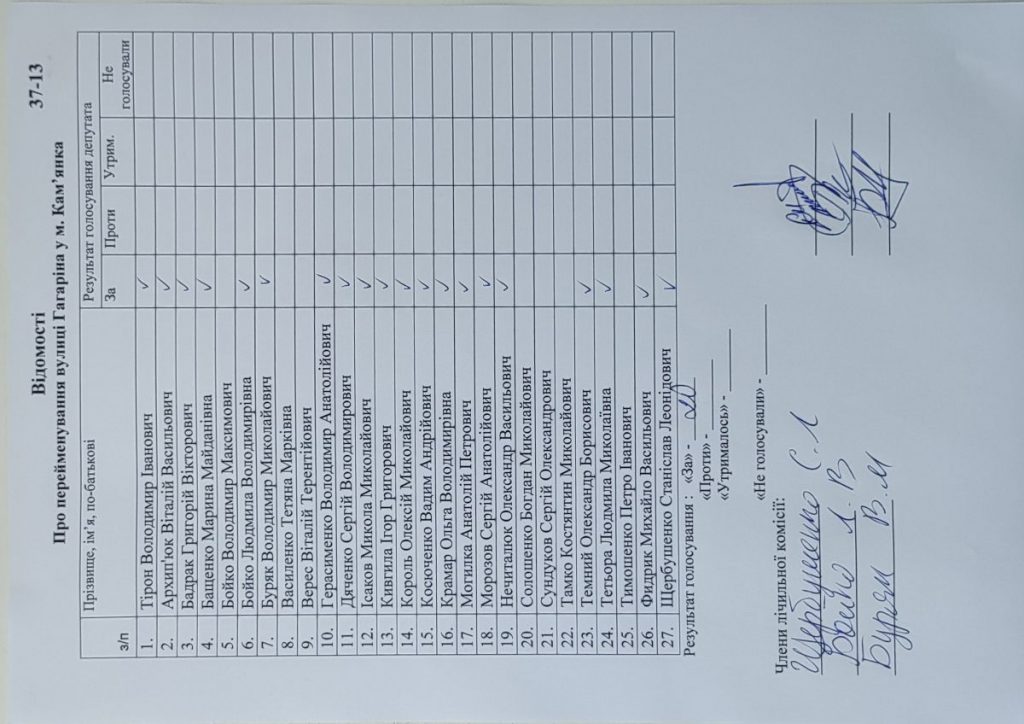 37-13
Відомості
Про перейменування вулиці Гагаріна у м. Кам'янка
з/п Прізвище, ім'я, по-батькові Результат голосування депутата
За Проти Утрим. Не голосували
1. Тірон Володимир Іванович ✓
2. Архип'юк Віталій Васильович ✓
3. Бадрак Григорій Вікторович ✓
4. Бащенко Марина Майданівна ✓
5. Бойко Володимир Максимович
6. Бойко Людмила Володимирівна ✓
7. Буряк Володимир Миколайович ✓
8. Василенко Тетяна Марківна
9. Верес Віталій Терентійович
10. Герасименко Володимир Анатолійович ✓
11. Дяченко Сергій Володимирович ✓
12. Ісаков Микола Миколайович ✓
13. Кивгила Ігор Григорович ✓
14. Король Олексій Миколайович ✓
15. Косюченко Вадим Андрійович ✓
16. Крамар Ольга Володимирівна ✓
17. Могилка Анатолій Петрович ✓
18. Морозов Сергій Анатолійович ✓
19. Нечиталюк Олександр Васильович ✓
20. Солошенко Богдан Миколайович
21. Сундуков Сергій Олександрович
22. Тамко Костянтин Миколайович
23. Темний Олександр Борисович ✓
24. Тетьора Людмила Миколаївна ✓
25. Тимошенко Петро Іванович
26. Фидрик Михайло Васильович ✓
27. Щербушенко Станіслав Леонідович ✓
Результат голосування : «За» - 20
«Проти» -
«Утрималось» -
«Не голосували» -
Члени лічильної комісії:
Щербушенко С.Л
Бойко Л.В
Буряк В.М